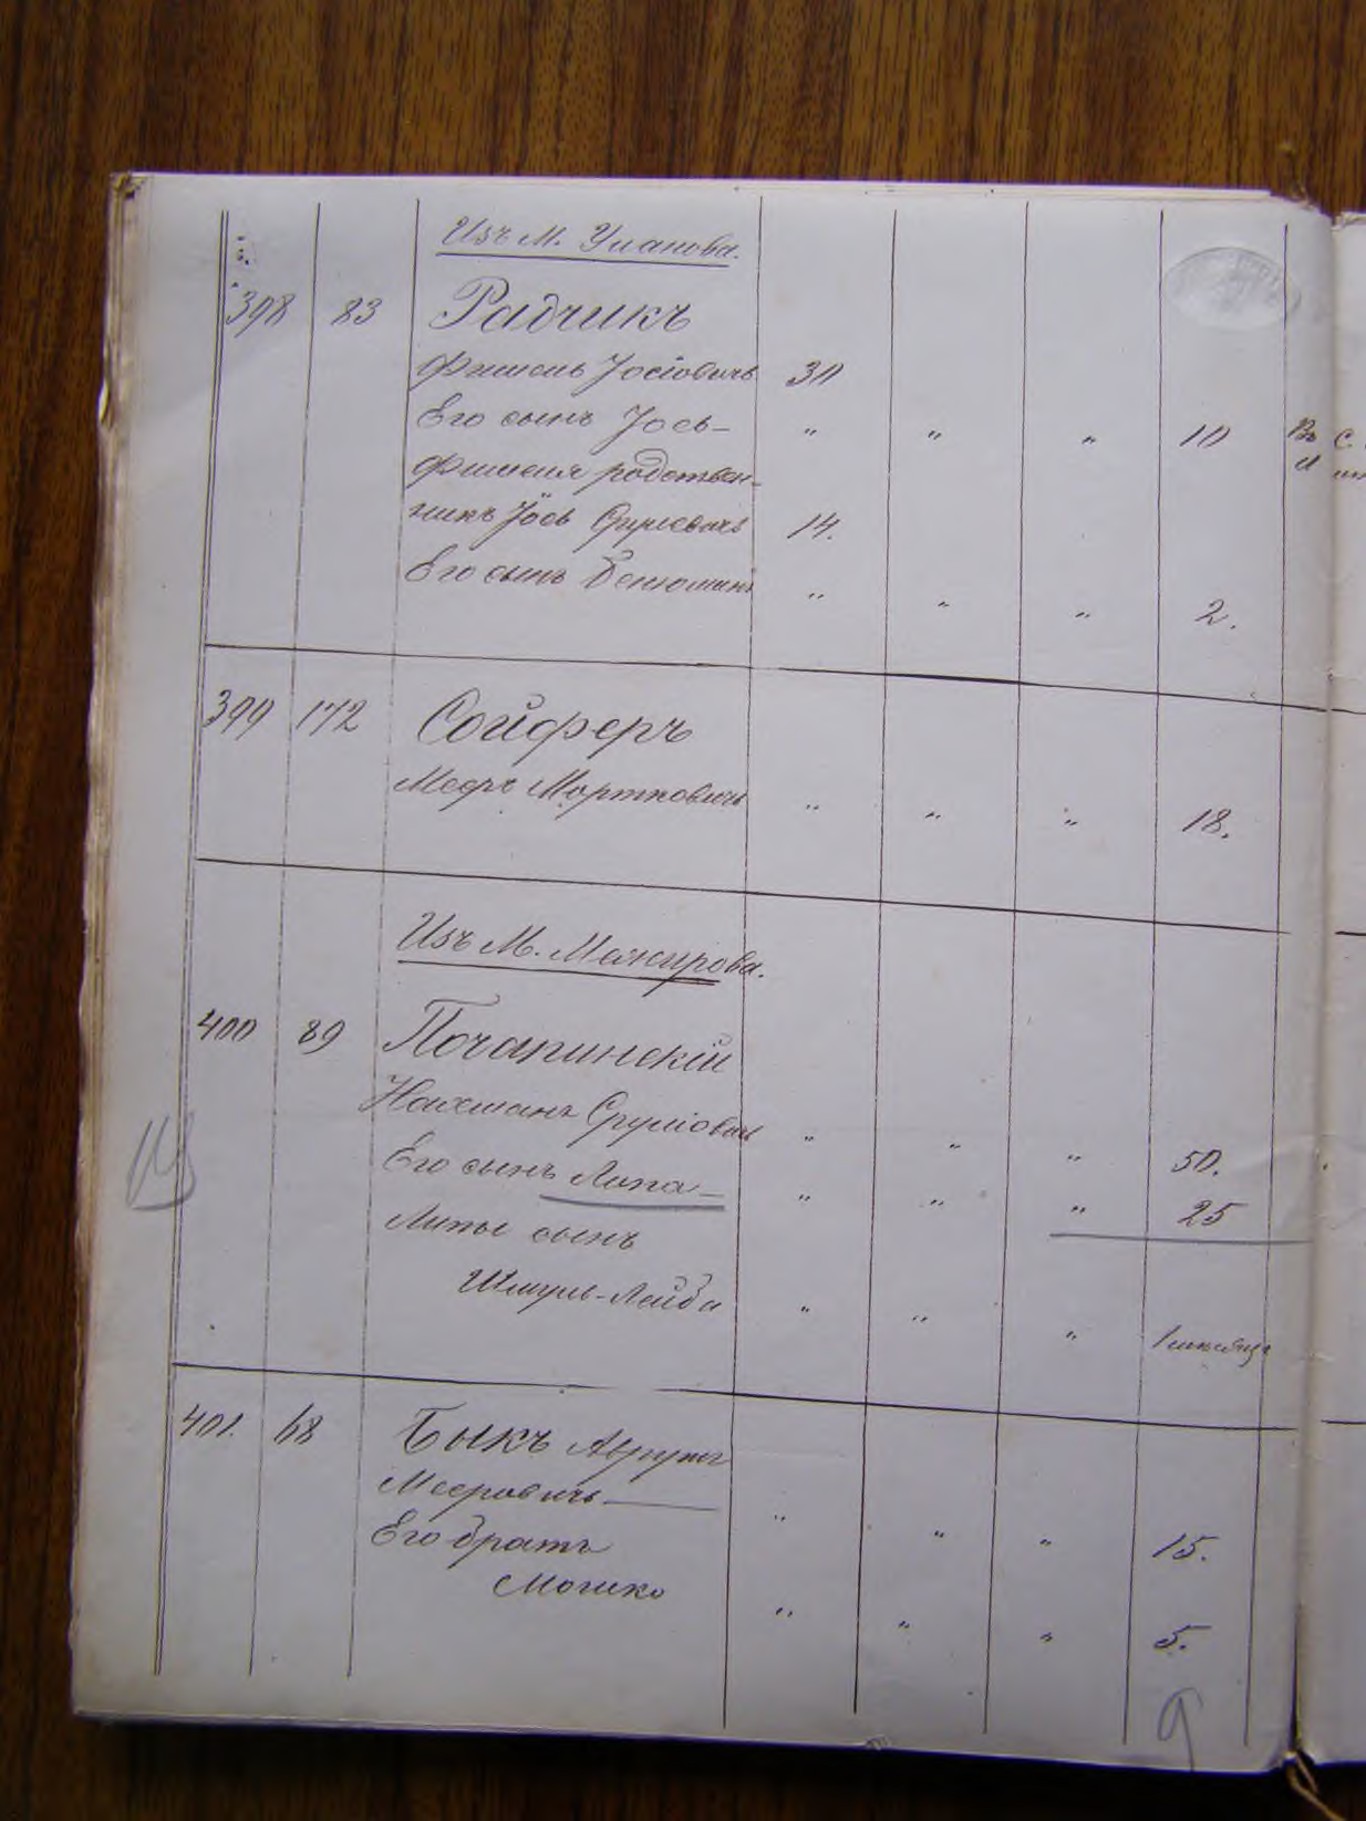 Изъ М. Уланова.
398 83 Радчикъ
Фишель Іосіовичъ 30
Его сынъ Іось- " " " 10
Фишеля родствен-
никъ Іось Сруловичъ 14.
Его сынъ Бенюминъ " " " 2.
399 172 Сойферъ
Мееръ Мортковичъ " " " 18.
Изъ М. Межирова.
400 89 Почапинскій
Нахманъ Сруліовичъ " " " 50.
Его сынъ Липа- " " " 25
Липы сынъ
Шмуль-Лейба " " " 1 мѣсяцъ
401. 68 Быкъ
Мееровичъ " " " 15.
Его братъ
Мошко " " " 5.
9